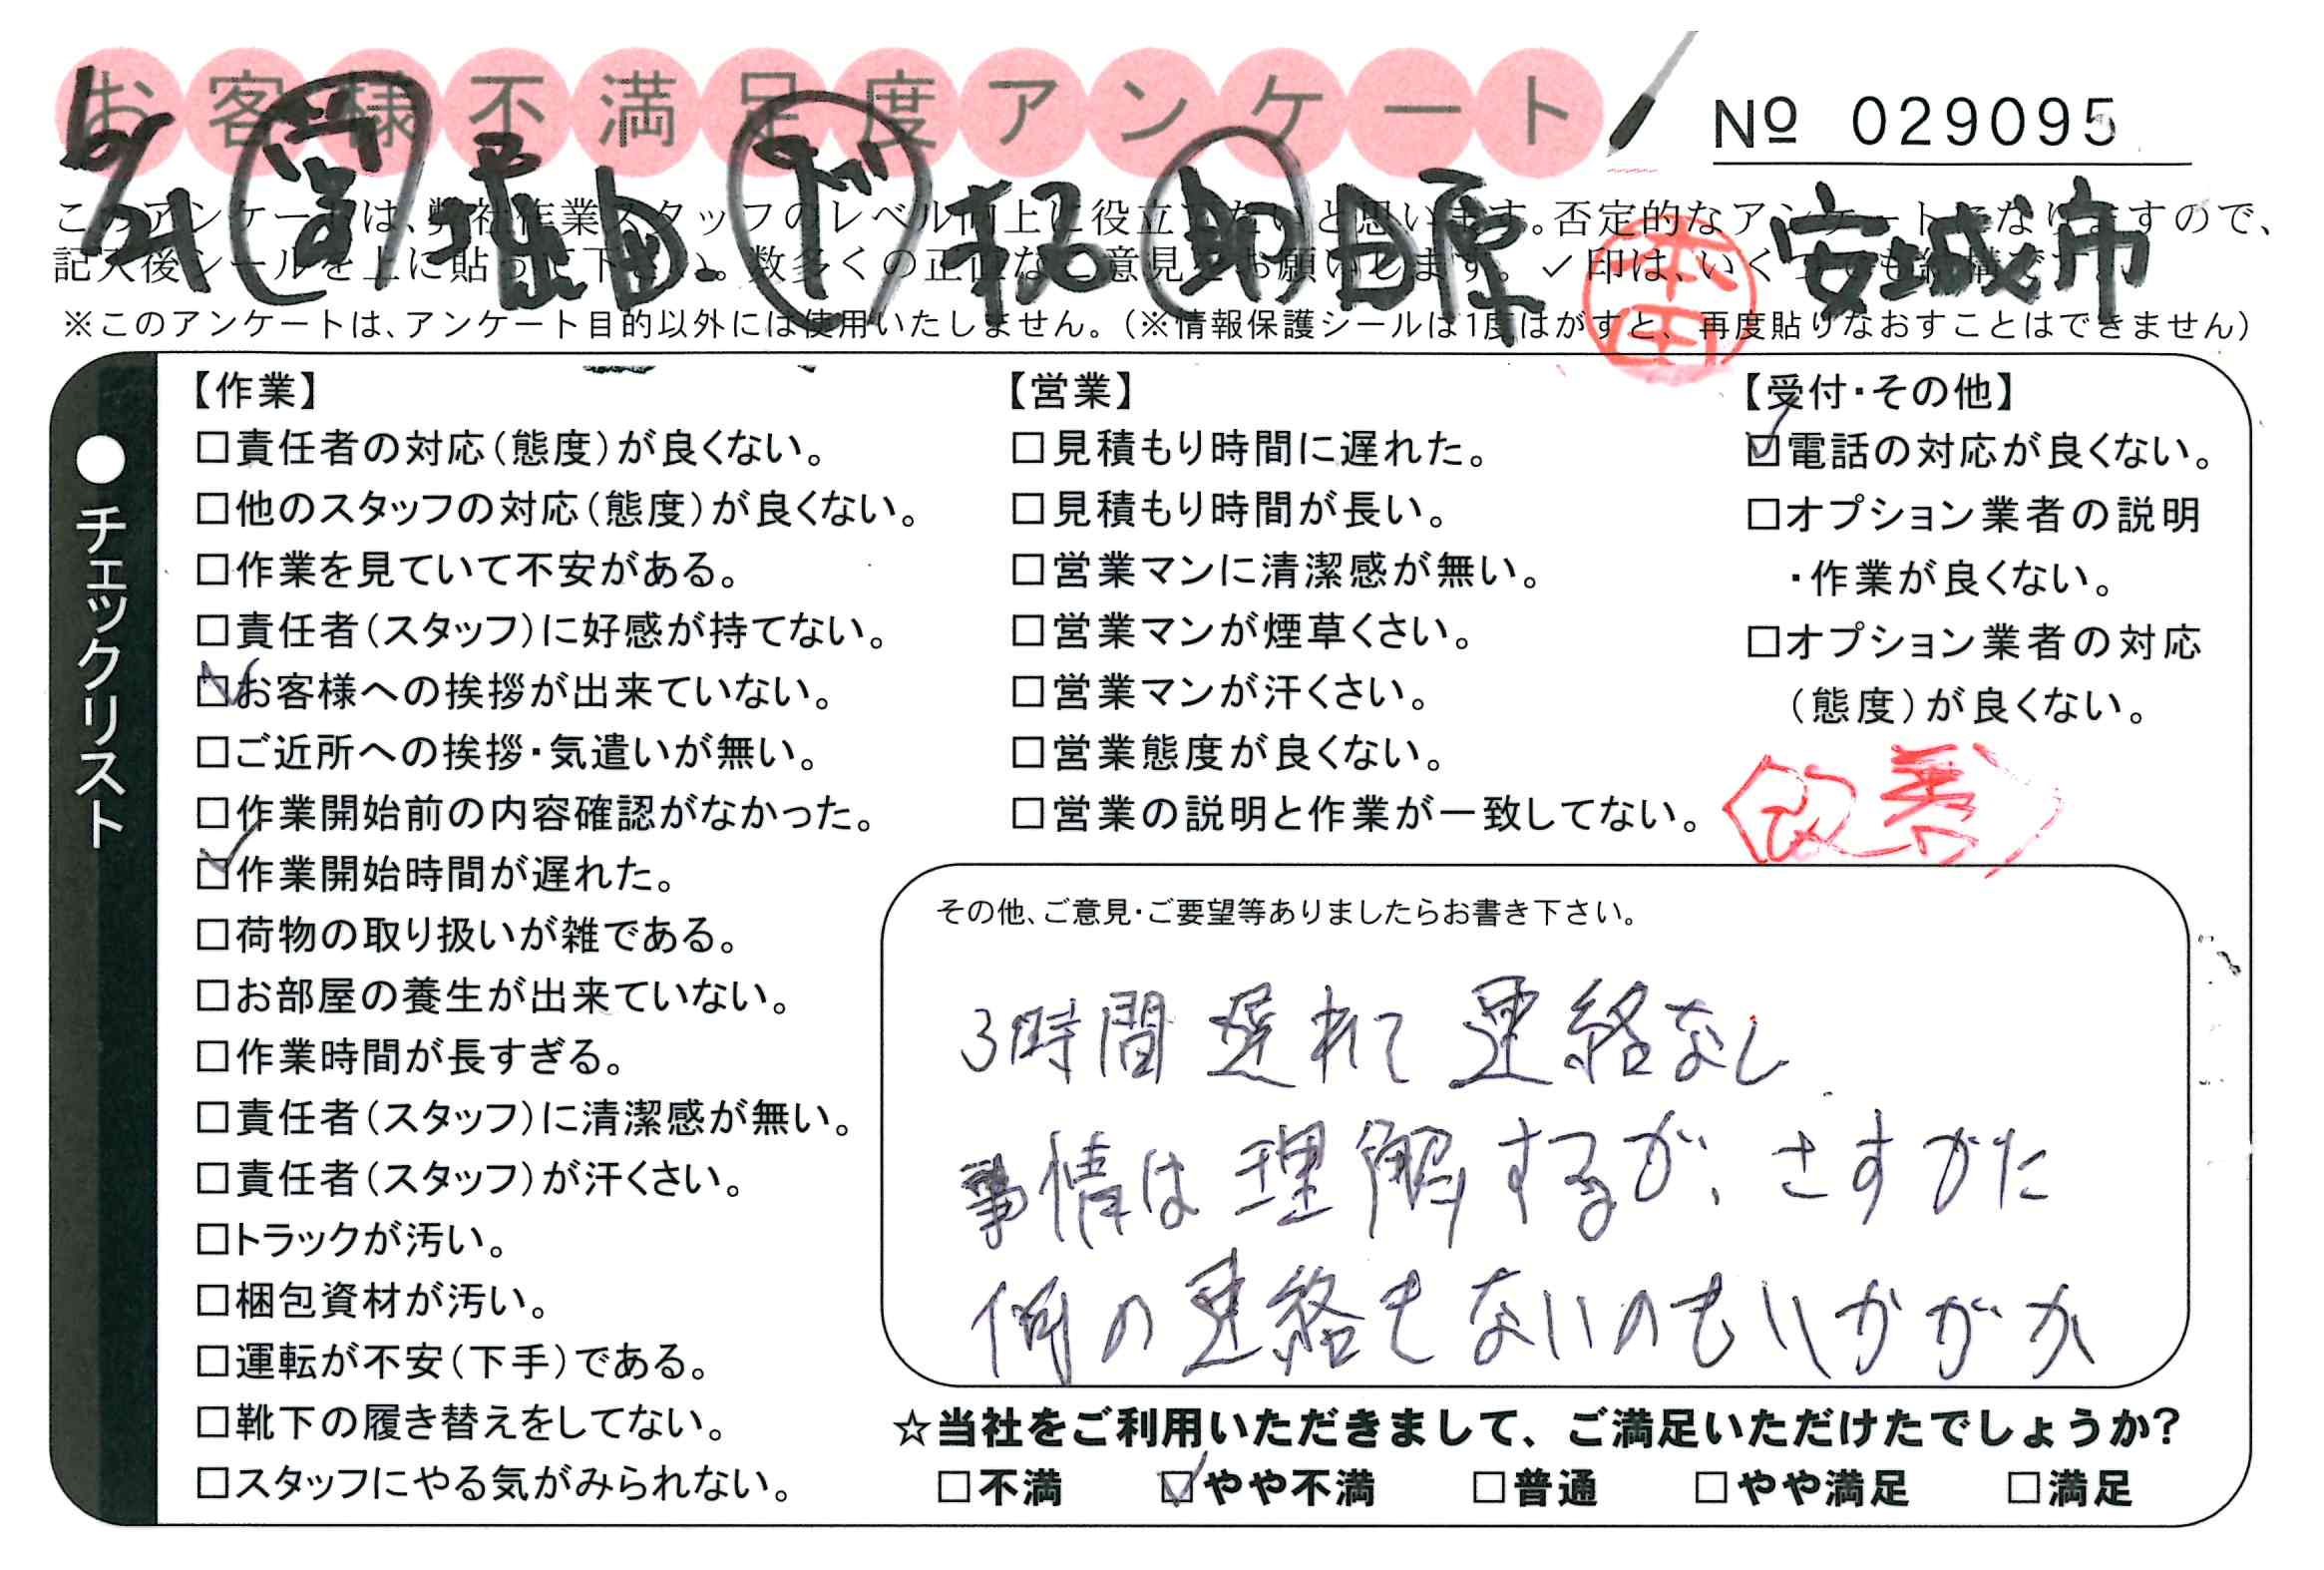 お客様不満足度アンケート
№ 029095
6/21 営 堀田 ド 拓 助 田原 安城市
本田
このアンケートは、弊社作業スタッフのレベル向上に役立てたいと思います。否定的なアンケートになりますので、
記入後シールを上に貼って下さい。数多くの正直なご意見をお願いします。✓印は、いくつでも結構です。
※このアンケートは、アンケート目的以外には使用いたしません。(※情報保護シールは1度はがすと、再度貼りなおすことはできません)
●チェックリスト
【作業】
□責任者の対応(態度)が良くない。
□他のスタッフの対応(態度)が良くない。
□作業を見ていて不安がある。
□責任者(スタッフ)に好感が持てない。
☑お客様への挨拶が出来ていない。
□ご近所への挨拶・気遣いが無い。
□作業開始前の内容確認がなかった。
☑作業開始時間が遅れた。
□荷物の取り扱いが雑である。
□お部屋の養生が出来ていない。
□作業時間が長すぎる。
□責任者(スタッフ)に清潔感が無い。
□責任者(スタッフ)が汗くさい。
□トラックが汚い。
□梱包資材が汚い。
□運転が不安(下手)である。
□靴下の履き替えをしてない。
□スタッフにやる気がみられない。
【営業】
□見積もり時間に遅れた。
□見積もり時間が長い。
□営業マンに清潔感が無い。
□営業マンが煙草くさい。
□営業マンが汗くさい。
□営業態度が良くない。
□営業の説明と作業が一致してない。
【受付・その他】
☑電話の対応が良くない。
□オプション業者の説明
・作業が良くない。
□オプション業者の対応
(態度)が良くない。
改善
その他、ご意見・ご要望等ありましたらお書き下さい。
3時間遅れて連絡なし
事情は理解するが、さすがに
何の連絡もないのもいかがか
☆当社をご利用いただきまして、ご満足いただけたでしょうか?
□不満 ☑やや不満 □普通 □やや満足 □満足